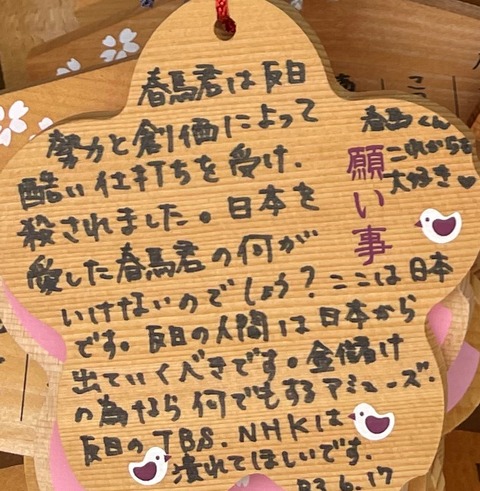 春馬君は反日
勢力と創価によって
酷い仕打ちを受け、
殺されました。日本を
愛した春馬君の何が
いけないのでしょう?ここは日本
です。反日の人間は日本から
出ていくべきです。金儲け
の為なら何でもするアミューズ.
反日のTBS.NHKは
潰れてほしいです。
R3.6.17
春馬くん
これからも
大好き♥
願い事